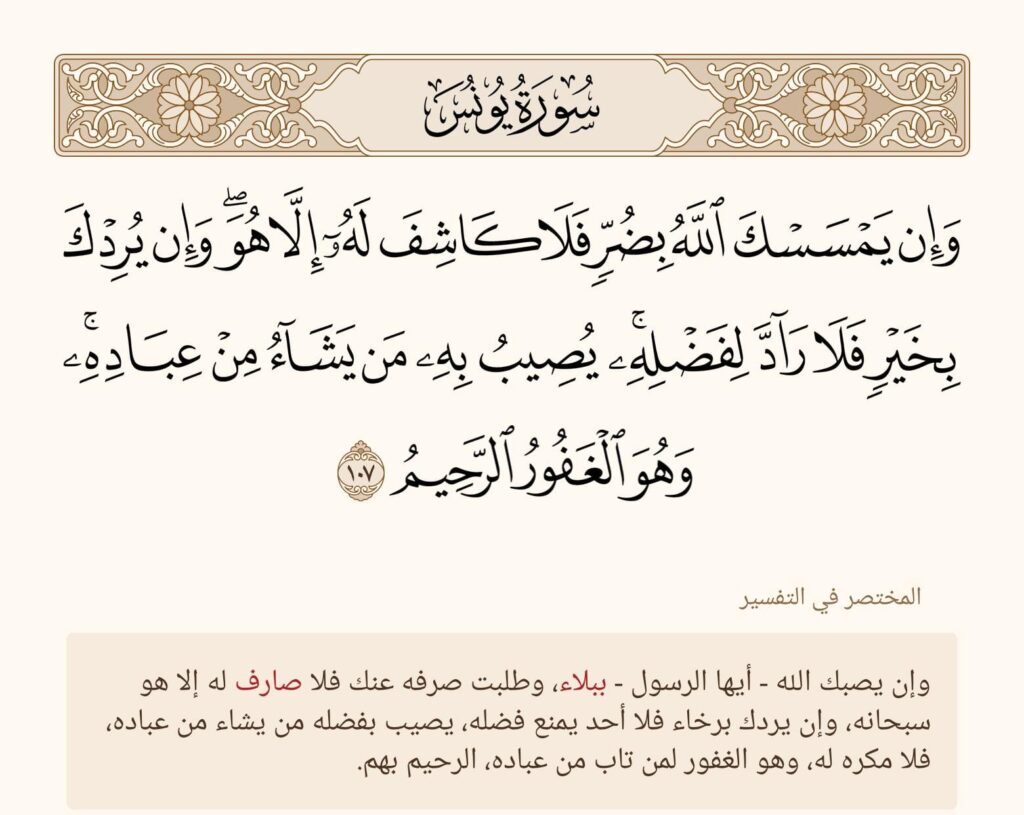 سُورَةُ يُونُسَ
وَإِن يَمْسَسْكَ ٱللَّهُ بِضُرٍّۢ فَلَا كَاشِفَ لَهُۥٓ إِلَّا هُوَ ۖ وَإِن يُرِدْكَ
بِخَيْرٍۢ فَلَا رَآدَّ لِفَضْلِهِۦ ۚ يُصِيبُ بِهِۦ مَن يَشَآءُ مِنْ عِبَادِهِۦ ۚ
وَهُوَ ٱلْغَفُورُ ٱلرَّحِيمُ ١٠٧
المختصر في التفسير
وإن يصبك الله - أيها الرسول - ببلاء، وطلبت صرفه عنك فلا صارف له إلا هو
سبحانه، وإن يردك برخاء فلا أحد يمنع فضله، يصيب بفضله من يشاء من عباده،
فلا مكره له، وهو الغفور لمن تاب من عباده، الرحيم بهم.